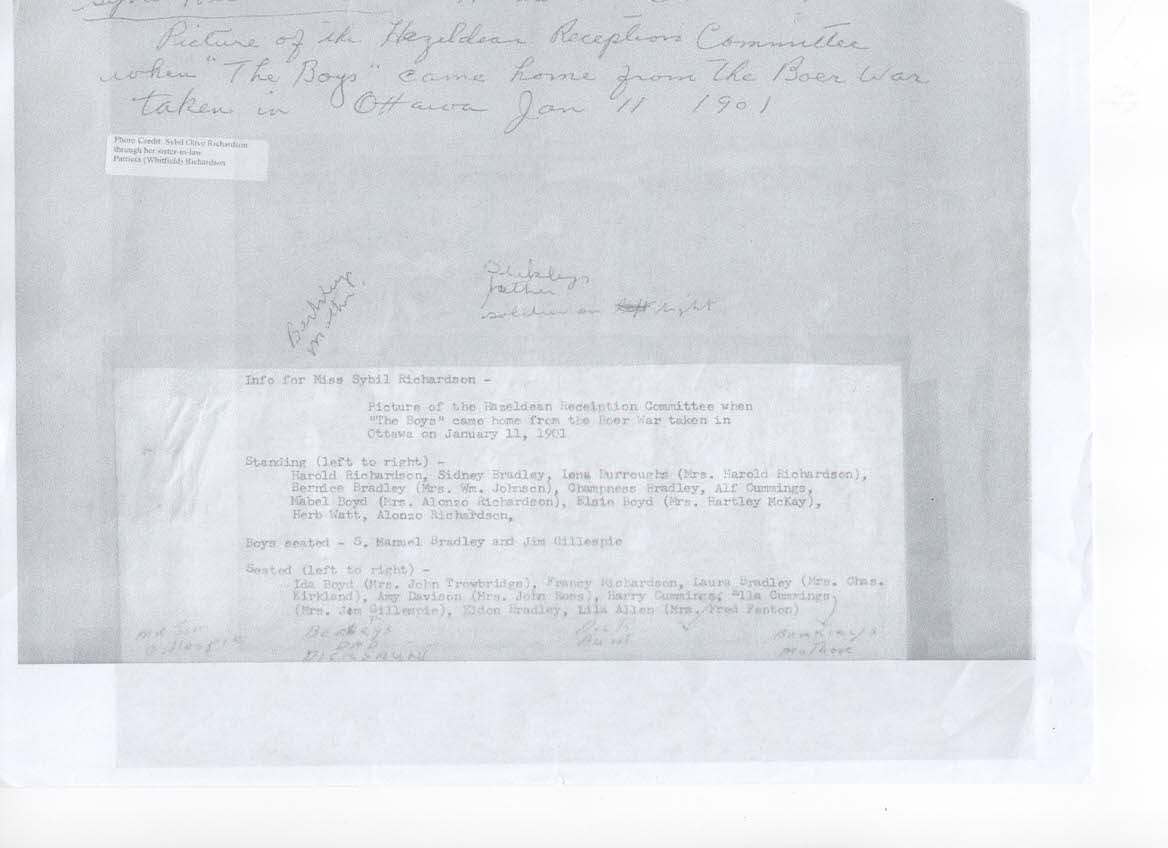 Picture of the Hazeldean Reception Committee
when "The Boys" came home from The Boer War
taken in Ottawa Jan 11 1901
Photo Credit: Sybil Olive Richardson
through her sister-in-law
Patricia (Whitfield) Richardson
father
soldier on left right
Info for Miss Sybil Richardson -
Picture of the Hazeldean Receiption Committee when
"The Boys" came home from the Boer War taken in
Ottawa on January 11, 1901
Standing (left to right) -
Harold Richardson, Sidney Bradley, Lena Burroughs (Mrs. Harold Richardson),
Bernice Bradley (Mrs. Wm. Johnson), Champness Bradley, Alf Cummings,
Mabel Boyd (Mrs. Alonzo Richardson), Elsie Boyd (Mrs. Hartley McKay),
Herb Watt, Alonzo Richardson,
Boys seated - S. Manuel Bradley and Jim Gillespie
Seated (left to right) -
Ida Boyd (Mrs. John Trowbridge), Francy Richardson, Laura Bradley (Mrs. Chas.
Kirkland), Amy Davison (Mrs. John Ross), Harry Cummings, Ella Cummings
(Mrs. Jim Gillespie), Eldon Bradley, Lila Allen (Mrs. Fred Fenton)
Aunt